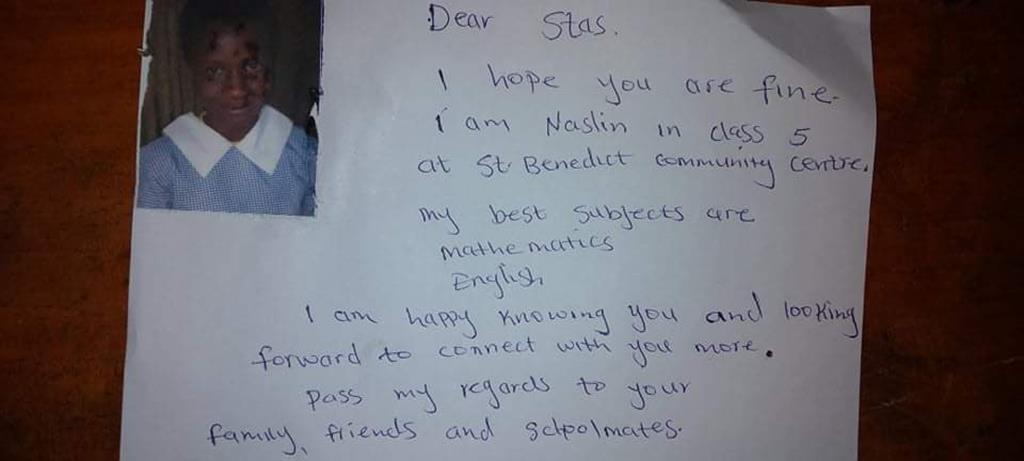 Dear Stas.
I hope you are fine.
i am Naslin in class 5
at St. Benedict community centre.
my best subjects are
mathematics
English
I am happy knowing you and looking
forward to connect with you more.
pass my regards to your
family, friends and sclpolmates.